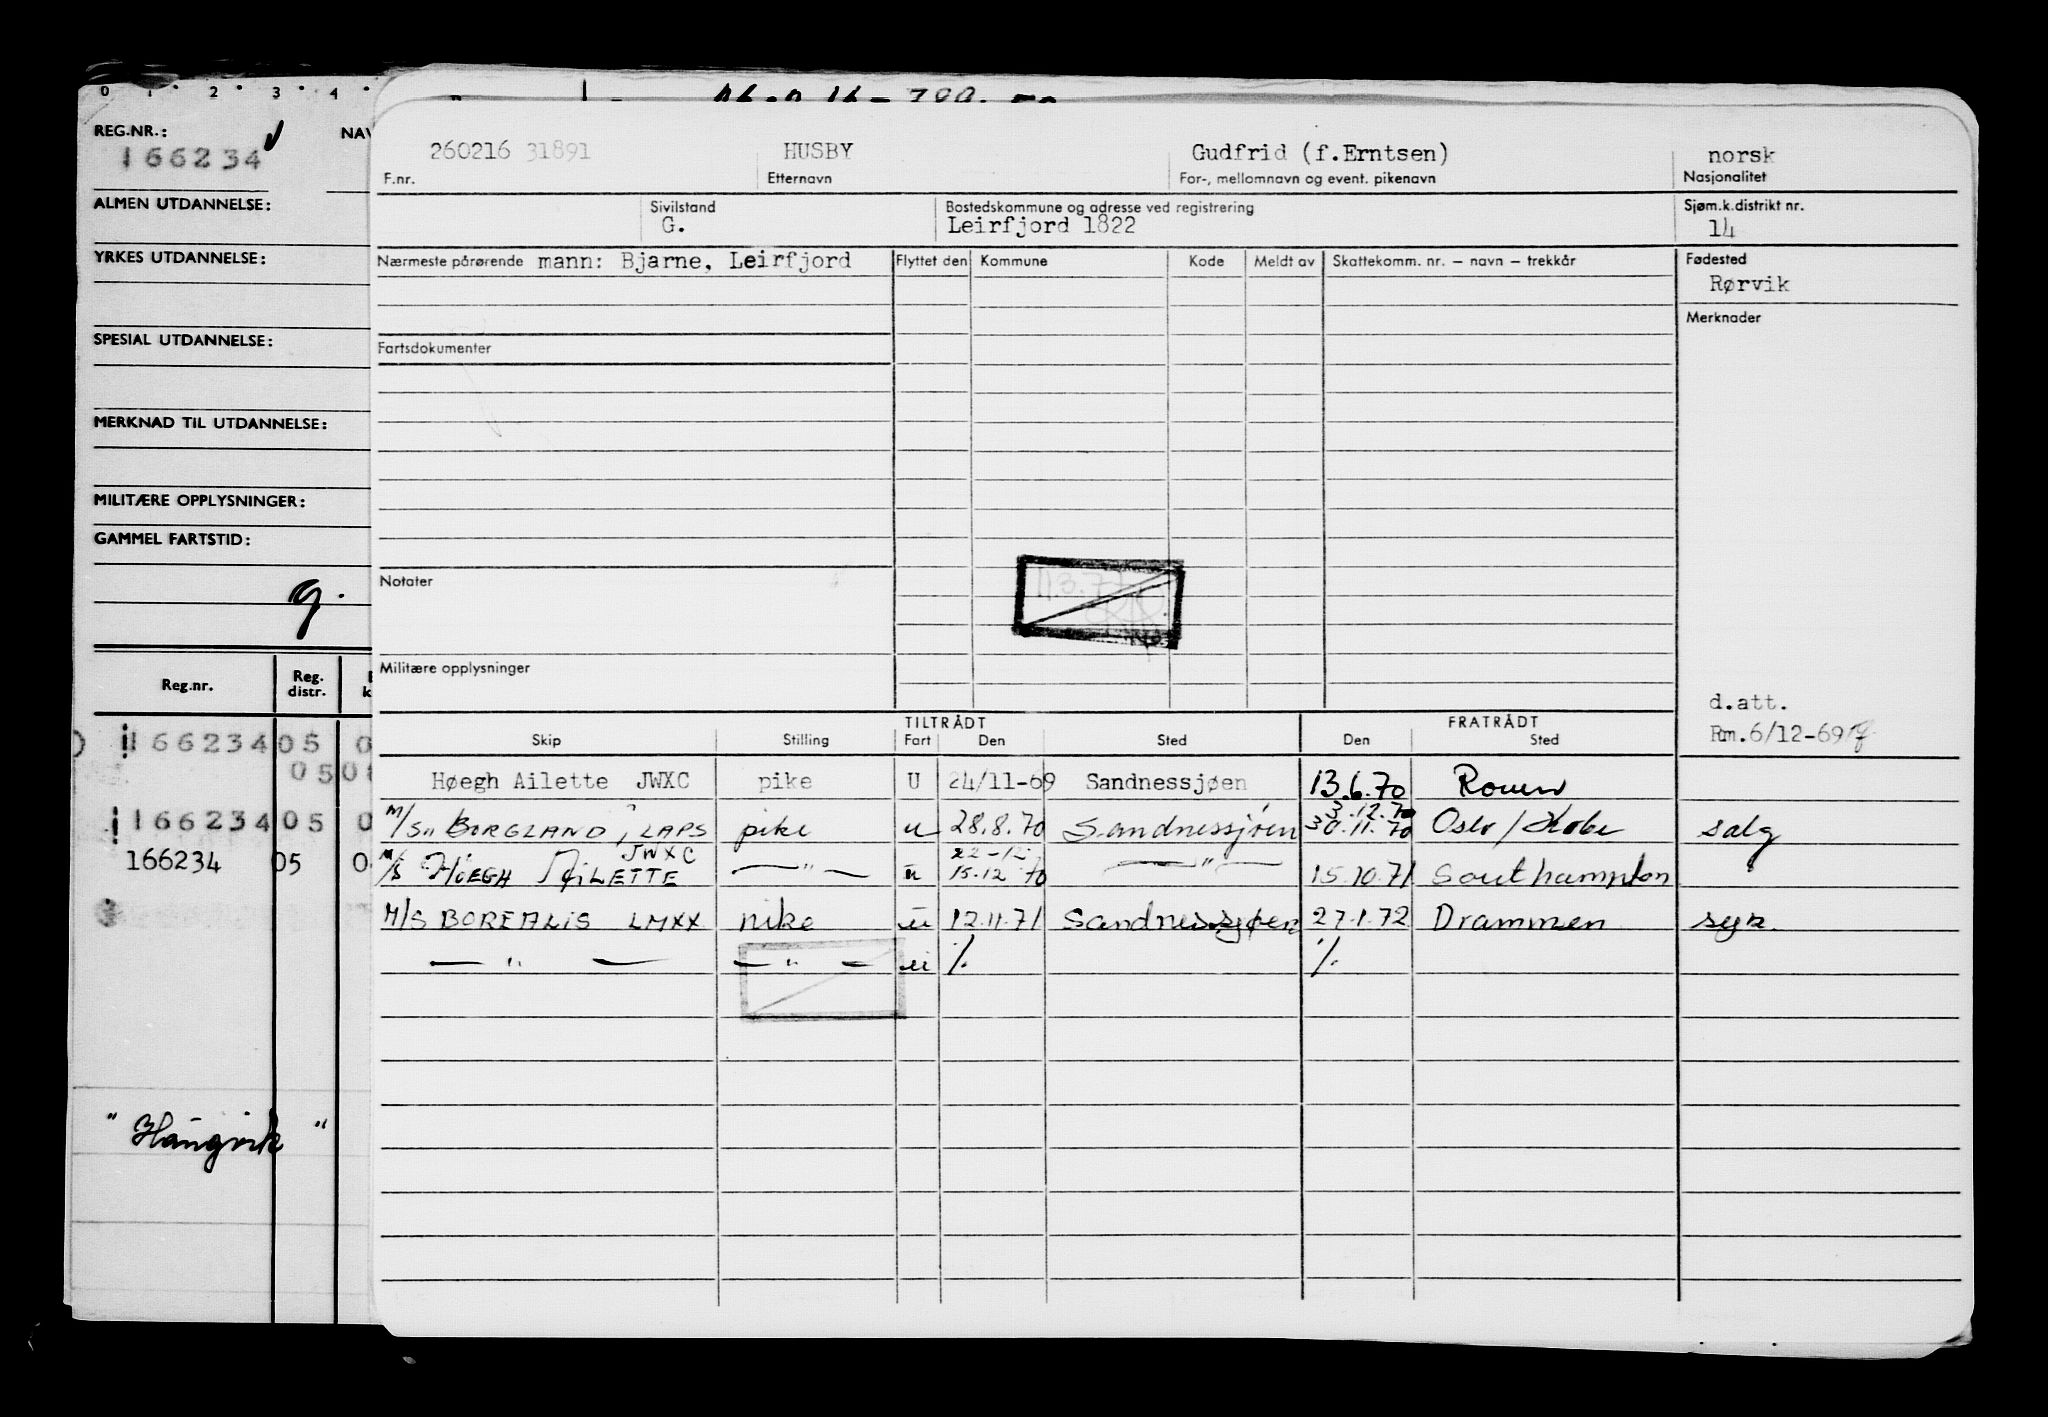 0 1 2 3 4
REG.NR.: NAV
166234
ALMEN UTDANNELSE:
YRKES UTDANNELSE:
SPESIAL UTDANNELSE:
MERKNAD TIL UTDANNELSE:
MILITÆRE OPPLYSNINGER:
GAMMEL FARTSTID:
g.
Reg.nr. Reg. distr.
166234 05 0
050
166234 05 0
166234 05 0
" Haugvik "
260216 31891 HUSBY Gudfrid (f.Erntsen) norsk
F.nr. Etternavn For-, mellomnavn og event. pikenavn Nasjonalitet
Sivilstand Bostedskommune og adresse ved registrering Sjøm.k.distrikt nr.
G. Leirfjord 1822 14
Nærmeste pårørende mann: Bjarne, Leirfjord Flyttet den Kommune Kode Meldt av Skattekomm. nr. – navn – trekkår Fødested
Rørvik
Merknader
Fartsdokumenter
Notater
Militære opplysninger
d.att.
Rm.6/12-69
TILTRÅDT FRATRÅDT
Skip Stilling Fart Den Sted Den Sted
Høegh Ailette JWXC pike U 24/11-69 Sandnessjøen 13.6.70 Rouen
3.12.70
M/S "BORGLAND", LAPS pike u 28.8.70 Sandnessjøen 30.11.70 Oslo / Kobe salg
JWXC 22-12
M/S HØEGH AILETTE —"— u 15.12 70 —"— 15.10.71 Southampton
M/S BOREALIS LMXX pike u 12.11.71 Sandnessjøen 27.1.72 Drammen syk.
— " — — " — u ·/. ·/.